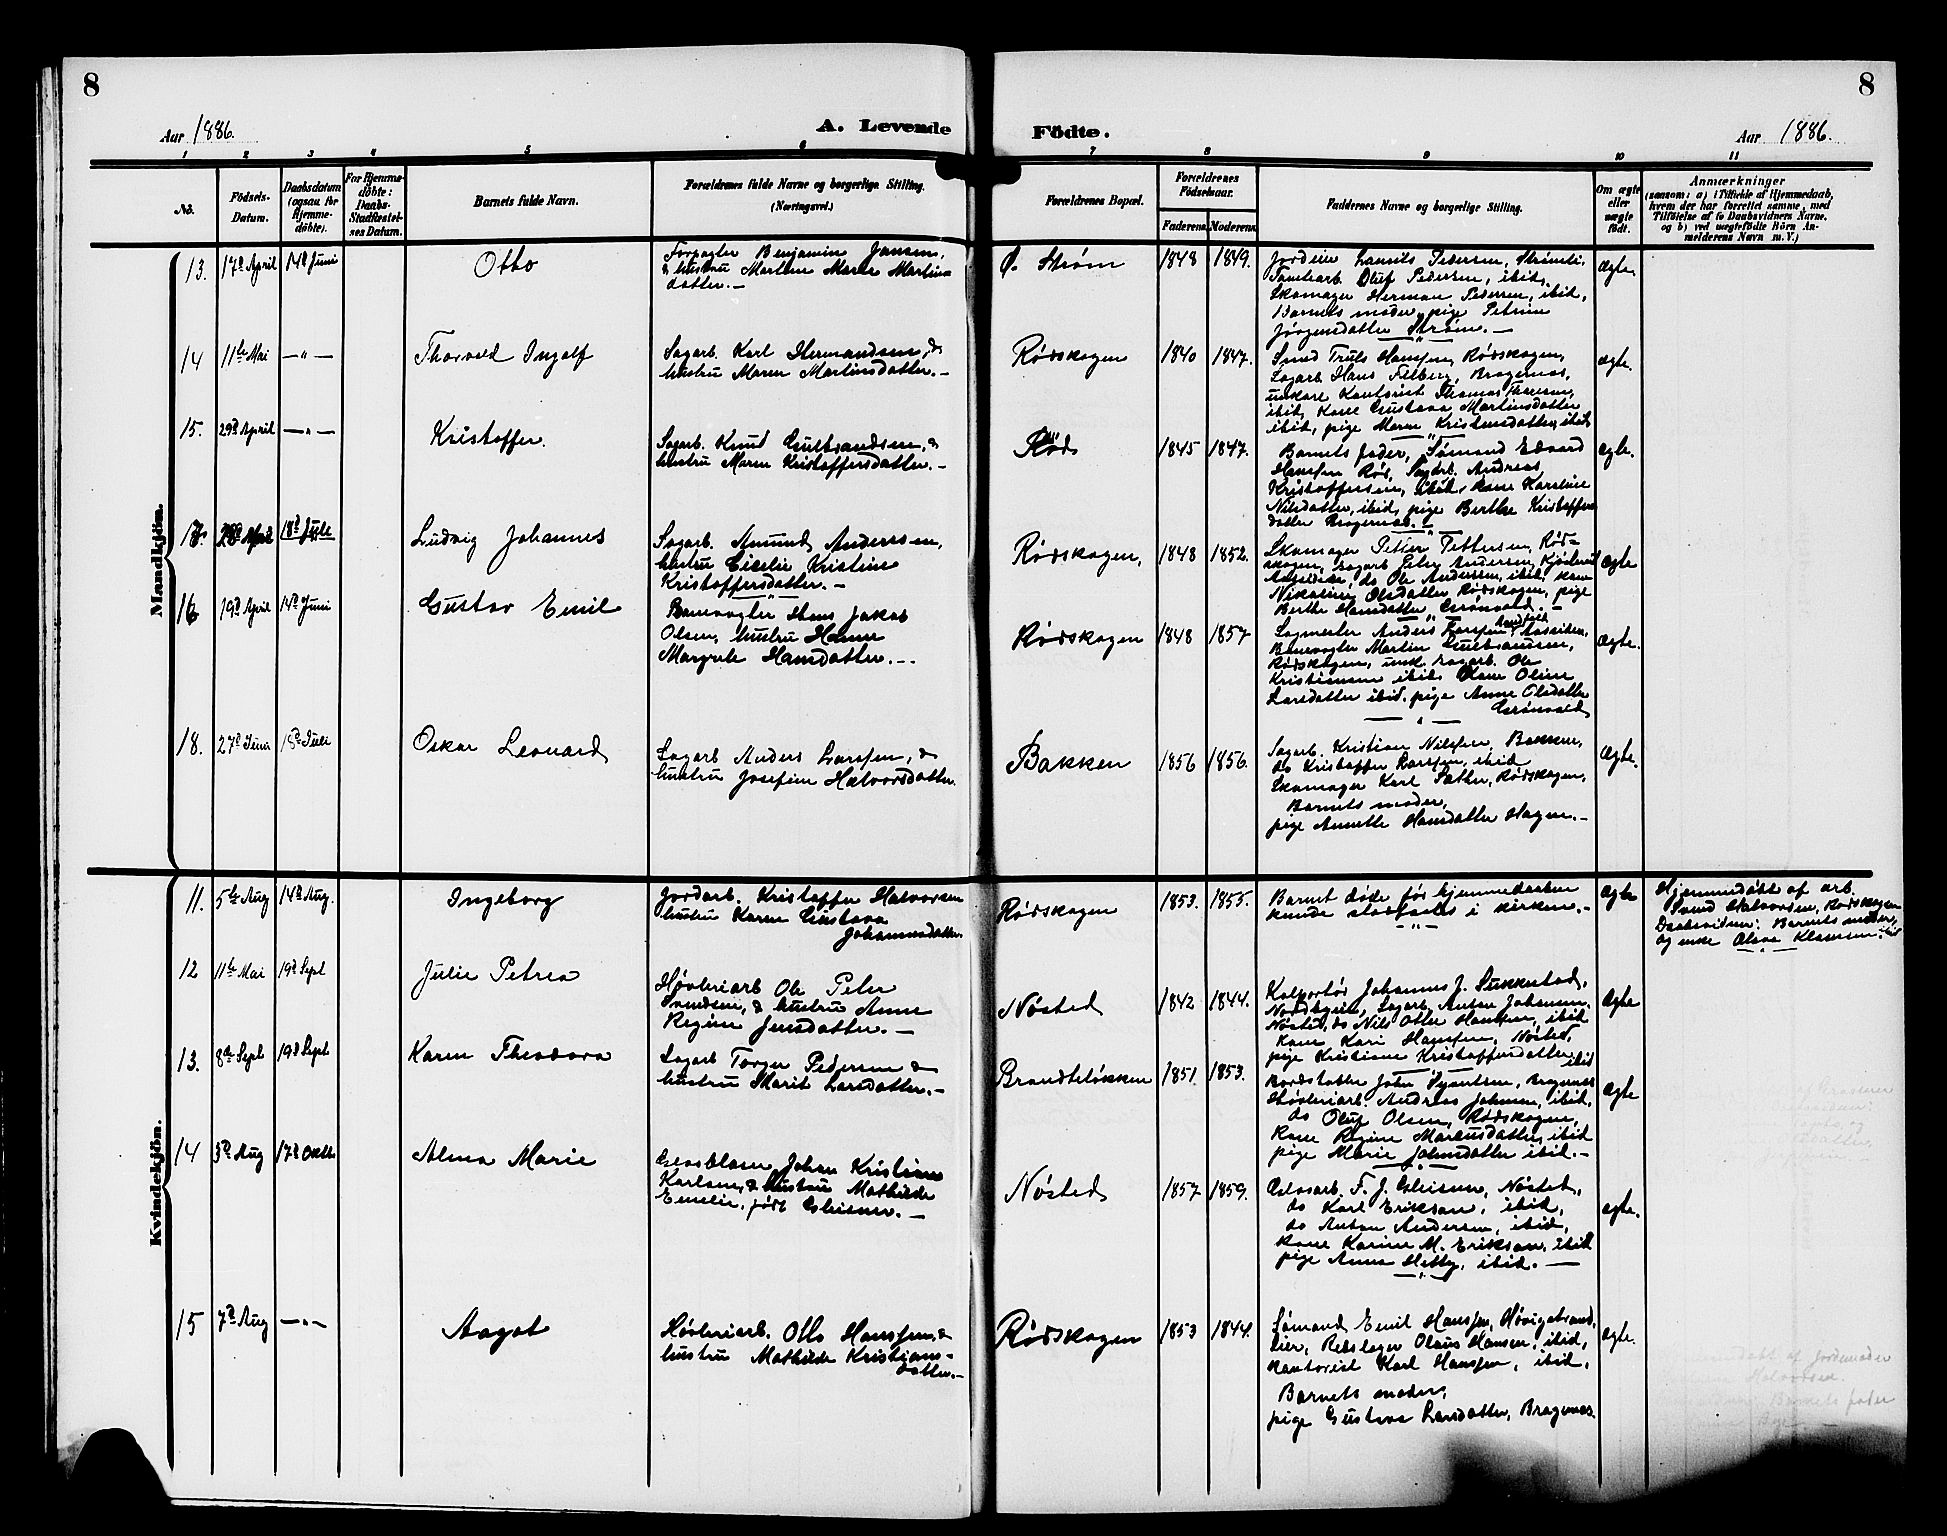 8
8
Aar 1886.
A. Levende
Födte.
Aar 1886.
1 2 3 4 5 6 7 8 9 10 11
No.
Födsels-
Datum.
Daabsdatum
(ogsaa for
Hjemme-
döbte).
For Hjemme-
döbte:
Daabs-
Stadfæstel-
ses Datum.
Barnets fulde Navn.
Forældrenes fulde Navne og borgerlige Stilling.
(Næringsvei.)
Forældrenes Bopæl.
Forældrenes
Födselsaar.
Faderens
Moderens
Faddernes Navne og borgerlige Stilling.
Om ægte
eller
uægte
født.
Anmærkninger
(saasom: a) i Tilfælde af Hjemmedaab,
hvem der har forrettet samme, med
Tilföielse af to Daabsvidners Navne,
og b) ved uægtefödte Börn An-
melderens Navn m. V.)
Mandkjön.
13.
17d April
14d Juni
Otto
Forpagter Benjamin Jansen,
& hustru Marthe Marie Martins
datter. —
Ø. Strøm
1848
1849.
Jordeier Laurits Pedersen,
Tomtearb. Oluf Pedersen, ibid,
Skomager Herman Pedersen, ibid,
Barnets moder, pige Petrine
Jørgensdatter Strøm. —
Ægte.
14
11te Mai
— " —
Thorvald Ingolf
Sagarb. Karl Hermandsen, &
hustru Maren Martinsdatter. —
Rødskogen
1840
1847.
Smed Truls Hansen, Rødskogen,
Sagarb Hans Filberg, Bragernes,
unkarl Kontorist Thomas
ibid, Kone Gustava Martinsdatter
ibid, pige Maren Kristensdatter, ibid
ægte.
15.
29d April
— " —
Kristoffer.
Sagarb. Knud Gulbrandsen, &
hustru Maren Kristoffersdatter. —
Rød
1845
1847.
Barnets fader, Sømand Edvard
Hansen Rød, Sagarb. Andreas
Kristoffersen, ibid, kone Karoline
Nilsdatter, ibid, pige Berthe Kristoffers
datter Bragernes. —
ægte.
17.
April
18d Juli
Ludvig Johannes
Sagarb. Amund Andersen,
hustru Cicelie Kristine
Kristoffersdatter. —
Rødskogen,
1848
1852.
Skomager Petter Pettersen, Rød-
skogen, sagarb Peter Andersen,
do Ole Andersen, ibid, kone
Nikoline Olsdatter Rødskogen, pige
Berthe Hansdatter, Grønvold. —
Ægte
16
19d April
14d Juni
Gustav Emil
Banevogter Hans Jakob
Olsen, hustru Hanne
Margrete Hansdatter. —
Rødskogen
1848
1857
Sagmester Anders Larssen, Aassiden,
Banevogter Martin Gulbransen,
Rødskogen, unk. sagarb. Ole
Kristiansen ibid, Kone Oline
Larsdatter ibid. pige Anne Olsdatter
Grønvold
Ægte.
18.
27d Juni
18d Juli
Oskar Leonard
Sagarb Anders Larssen, &
hustru Josefine Halvorsdatter.
Bakken
1856
1856.
Sagarb. Kristian Nilssen, Bakken,
do Kristoffer Larssen, ibid
Skomager Karl Sæther, Rødskogen,
Barnets moder,
pige Annette Hansdatter Hagen. —
Ægte.
Kvindekjön.
11.
5te Aug
14d Aug.
Ingeborg
Jordarb. Kristoffer Halvorsen
hustru Karen Gustava
Johannesdatter.
Rødskogen
1853.
1855.
Barnet døde før hjemmedaaben
kunde stadfæstes i kirken. —
Ægte
Hjemmedøbt af arb.
Svend Halvorsen, Rødskogen
Daabsvidner: Barnets moder,
og enke Olava Klausen, ibid
12
11te Mai
19d Sept
Julie Petrea
Høvleriarb Ole Peter
Svendsen, & hustru Anne
Regine Jensdatter. —
Nøsted
1842
1844.
Kolportør Johannes J. Sukkestad,
Sagarb. Anton Johansen,
Nøsted, do Nils Otter Hansen, ibid
Kone Kari Hansen, Nøsted,
pige Kristiane Kristoffersdatter ibid
Ægte
13.
8de Sept
19d Sept
Karen Theodora
Sagarb Torger Pedersen &
hustru Marit Larsdatter. —
Brandteløkken
1851.
1853.
John Syvertsen, Bragernes
Høvleriarb. Andreas Johnsen, ibid,
do Oluf Olsen, Rødskogen,
Kone Regine Markusdatter, ibid
pige Marie Johnsdatter ibid. —
Ægte
14
3d Aug
17d Octb
Alma Marie
Glasblæser Johan Kristian
Karlsen, & hustru Mathilde
Emelie, født Gleisner. —
Nøsted
1857
1859.
Glasarb. F. J. Gleisner, Nøsted,
do Karl Erikson, ibid,
do Anton Andersen, ibid,
Kone Karine M. Erikson, ibid
pige Anna Hetty, ibid. —
ægte.
15
7d Aug
— " —
Aagot
Høvleriarb. Otto Hanssen, &
hustru Mathilde Kristians-
datter. —
Rødskogen
1853
1844.
Sømand Emil Hanssen, Høvigstrand,
Lier, Rebslager Olaus Hansen, ibid,
Kontorist Karl Hanssen, ibid,
Barnets moder,
pige Gustava Larsdatter, Bragernes.
ægte.